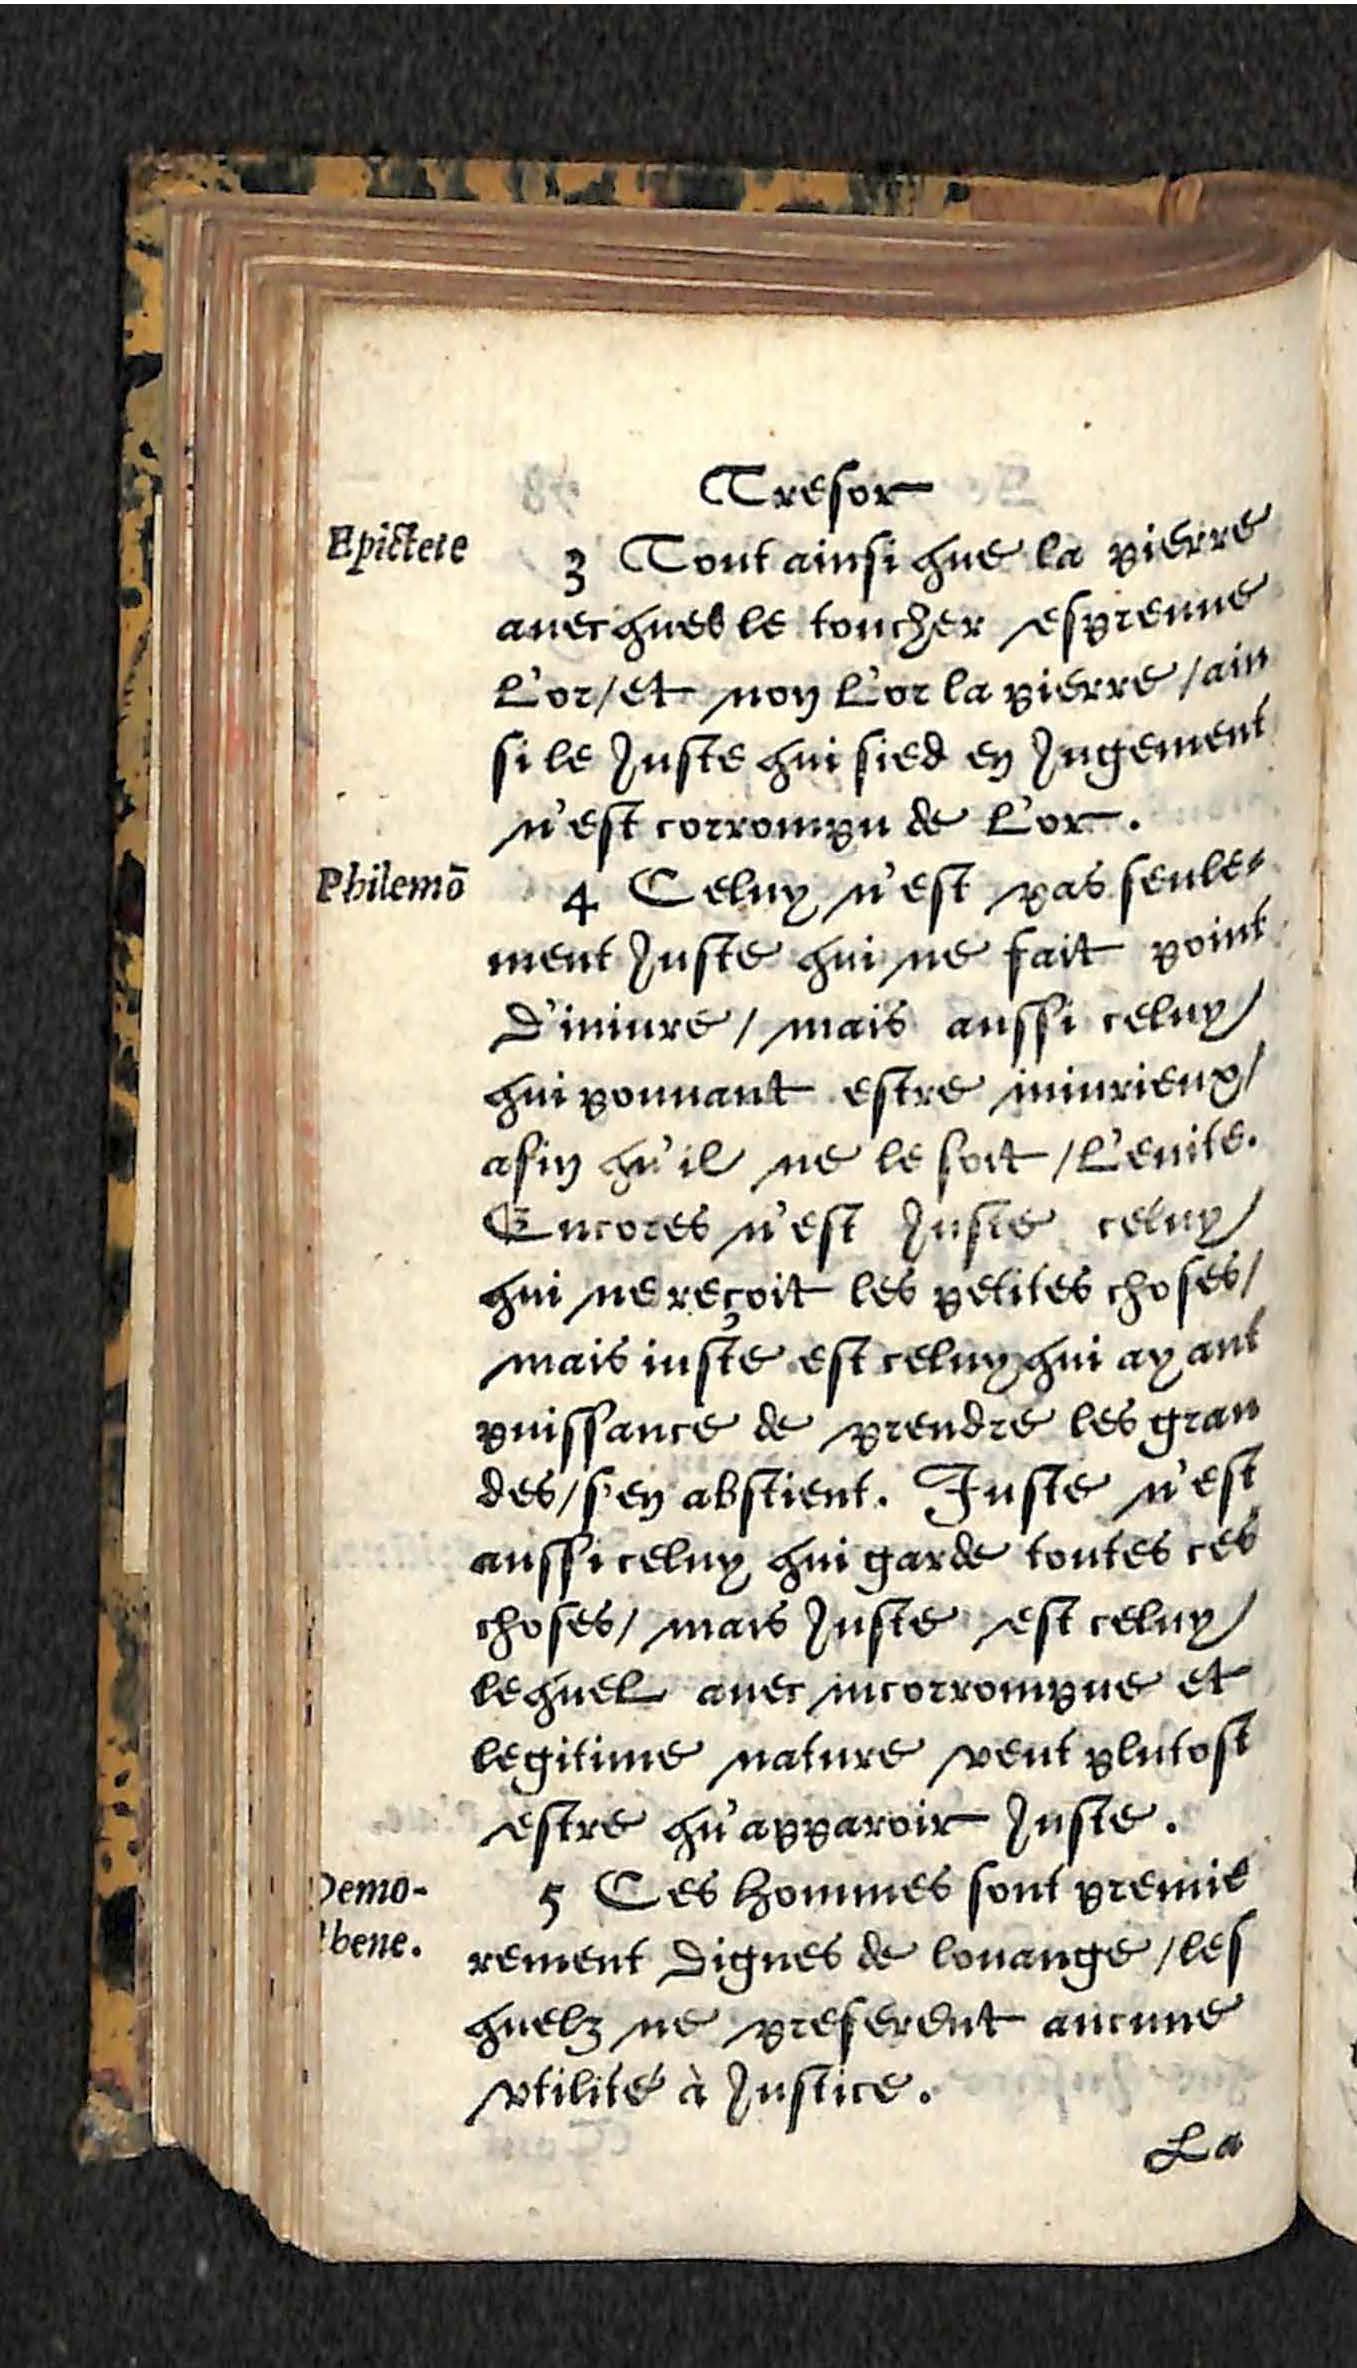 Tresor
Epictete
3 Tout ainsi que la pierre
auecques le toucher espreuue
L'or/et non L'or la pierre/ain
si le Juste qui sied en Jugement
n'est corrompu de L'or.
Philemō
4 Celuy n'est pas seule-
ment Juste qui ne fait point
d'iniure/ mais aussi celuy
qui pouuant estre iniurieux/
afin qu'il ne le soit/L'euite.
Encores n'est Juste celuy
qui ne reçoit les petites choses/
mais iuste est celuy qui ayant
puissance de prendre les gran
des/s'en abstient. Juste n'est
aussi celuy qui garde toutes ces
choses/ mais Juste est celuy
lequel auec incorrompue et
legitime nature veut plutost
estre qu'apparoir Juste.
Demo-
sthene.
5 Ces hommes sont premie
rement dignes de louange/les
quelz ne preferent aucune
vtilité à Justice.
La